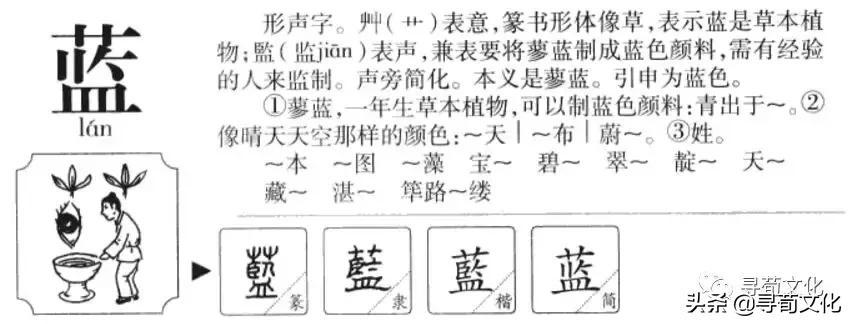 蓝
lán
形声字。艸(艹)表意，篆书形体像草，表示蓝是草本植
物；監(监jiān)表声，兼表要将蓼蓝制成蓝色颜料，需有经验
的人来监制。声旁简化。本义是蓼蓝。引申为蓝色。
①蓼蓝，一年生草本植物，可以制蓝色颜料：青出于～。②
像晴天天空那样的颜色：～天｜～布｜蔚～。③姓。
～本 ～图 ～藻 宝～ 碧～ 翠～ 靛～ 天～
藏～ 湛～ 筚路～缕
藍 篆
藍 隶
藍 楷
蓝 简
寻荀文化
头条 @寻荀文化